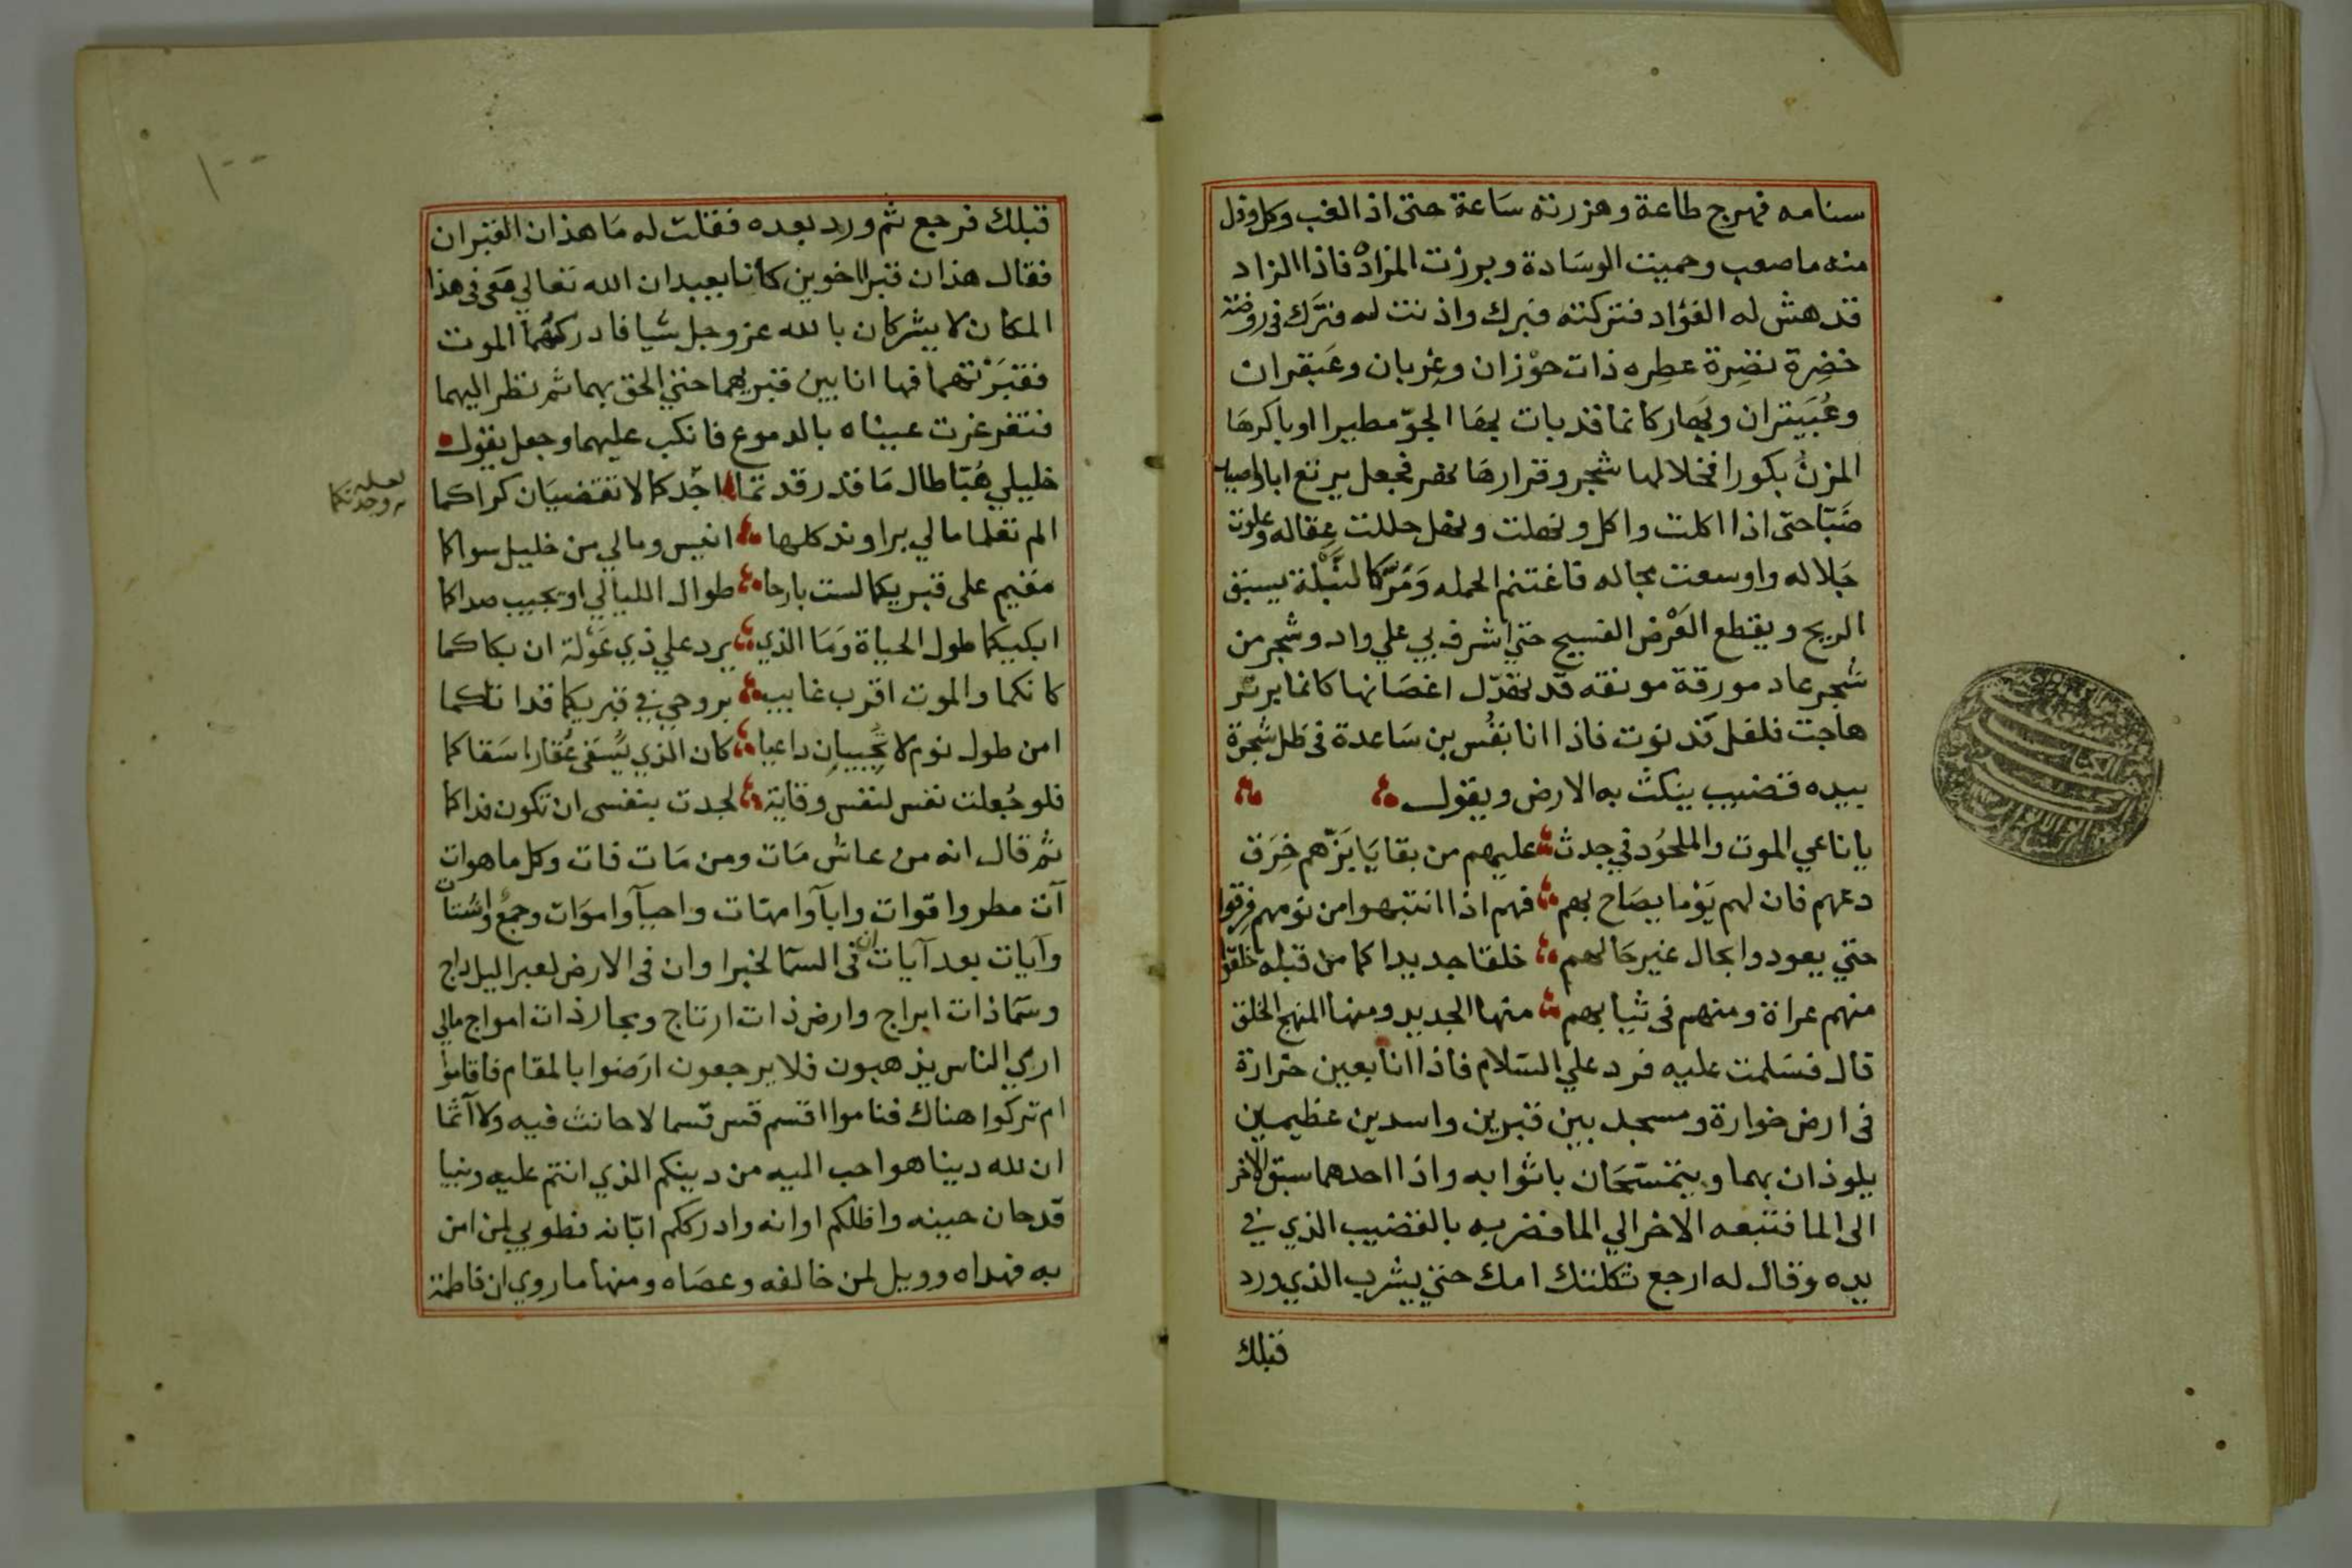 سنامه فهرج طاعة وهزرته سَاعة حتى اذ الغب وكل وذل
منه ماصعب وحميت الوسَادة وبرزت المزادْ فاذا الزاد
قد هش له الفؤاد فتركته فبرك واذنت له فترَك فى روضة
خضِرة نضِرة عطِره ذات حوْزان وعِربان وعَبقران
وعُبَيثران وبهار كانما قد بات بها الجوّ مطيرا او باكرهَا
المزنُ بكورا فخلالها شجر وقرارهَا نهر فجعل يرتع ابا واصيد
ضَبّا حتى اذا اكلت واكل ونهلت ونهل حللت عِقاله وعلوت
جَلاله واوسعت مجاله فاغتنم الحمله وَمَرّ كالنَّبْلة يسبق
الريح ويقطع العَرْض الفسيح حتي اشرف بي علي واد وشجر من
شجر عاد مورقة مونقه قد تهدّل اغصَانها كانما بريْر
هاجت فلفل قد نوت فاذا انا بقُس بن سَاعدة فى ظل شجرة
بيده قضيب ينكث به الارض ويقول
يا ناعي الموت والملحُود في جدث عليهم من بقايَا بَزّهم خِرَق
دعهم فان لهم يَوْما يصَاح بهم فهم اذا انتبهوا من نومهم فرِقوا
حتي يعودوا بحال غير حَالهم خلقا جديدا كما من قبله خلقوا
منهم عراة ومنهم فى ثيابهم منها الجديد ومنها المنهج الخلق
قال فسَلمت عليه فرد علي السّلام فاذا انا بعين خرارة
فى ارض خوارة ومسجد بين قبرين واسدين عظيمين
يلوذان بهما ويتمسّحَان باثوابه واذا احدهما سبق الاخر
الى الما فتبعه الاخر الي الما فضربه بالقضيب الذي في
يده وقال له ارجع ثكلتك امك حتي يشرب الذي ورد
قبلك
١٠٠
قبلك فرجع ثم ورد بعده فقلت له مَا هذان القبران
فقال هذان قبرا اخوين كانا يعبدان الله تعالي معى فى هذا
المكان لا يشركان بالله عز وجل شيا فادركهُما الموت
فقبَرْتهما فها انا بين قبريهما حتي الحق بهما ثم نظر اليهما
فتغرغرت عيناه بالدموع فانكب عليهما وجعل يقول
خليلي هُبّا طال مَا قد رقدتما اجّدكما لا تقضيَان كراكما
لعله
وجدتكما
الم تعلما مالي براوند كلها انيس ومالي من خليل سواكما
مقيم على قبريكما لست بارحا طوال الليالي او يجيب صداكما
ابكيكما طول الحياة وَمَا الذي يرد علي ذي عَوْلة ان بكاكما
كانكما والموت اقرب غايب بروحي في قبريكما قد اتاكما
امن طول نوم لا تجُيبانِ داعيا كان الذي يُسقى عُقارا سَقاكما
فلو جُعلت نفس لنفس وقاية لجدت بنفسى ان تكون فداكما
ثم قال انه من عاش مَات ومن مَات فات وكل ما هوات
آت مطر واقوات واباَ وامهتات واحياَ واموَات وجمعٌ واشتات
وآيات بعد آيات ان فى السمآ لخبرا وان فى الارض لعبرا ليل داج
وسَما ذات ابراج وارض ذات ارتاج وبحار ذات امواج مالي
اري الناس يذهبون فلا يرجعون ارَضوا بالمقام فاقاموا
ام تركوا هناك فناموا اقسم قس قسما لا حانث فيه ولا آثما
ان لله دينا هو احب اليه من دينكم الذي انتم عليه ونبيا
قد حان حينه واظلكم اوانه وادرككم ابّانه فطوبي لمن امن
به فهداه وويل لمن خالفه وعصَاه ومنها ما روي ان فاطمة